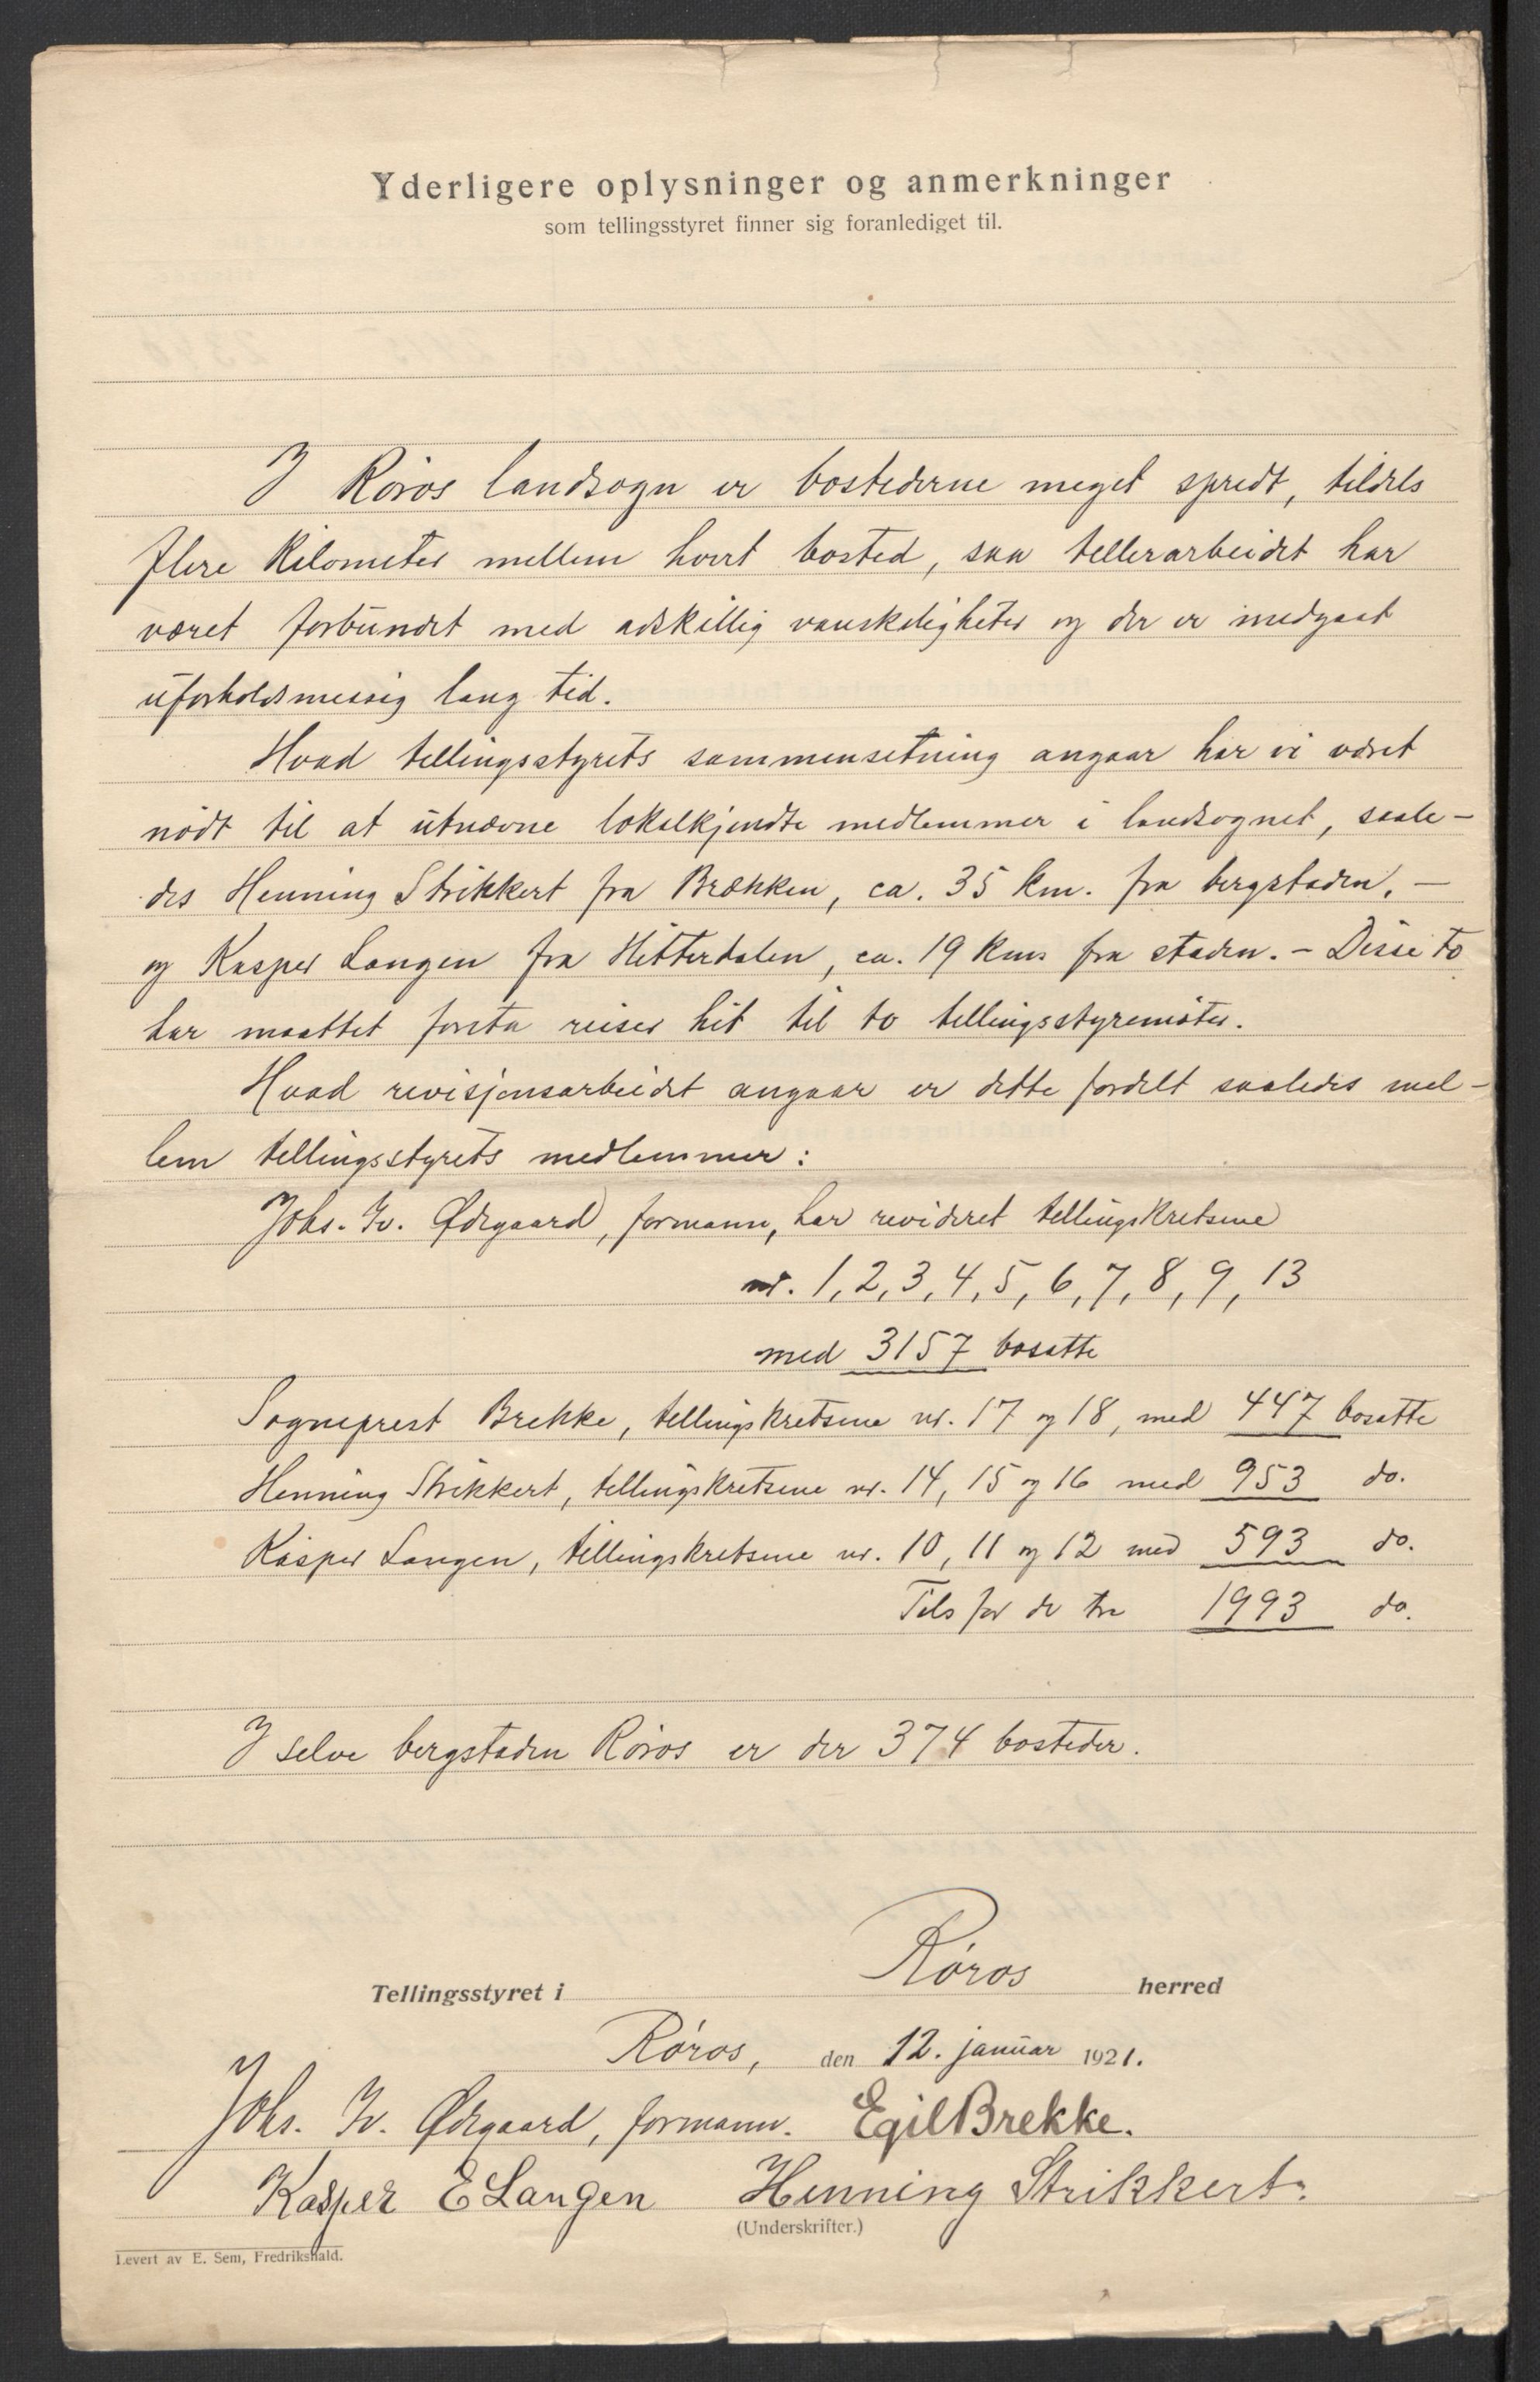 Yderligere oplysninger og anmerkninger
som tellingsstyret finner sig foranlediget til.
I Röros landsogn er bostederne meget spredt, tildels
flere kilometer mellem hvert bosted, saa tellerarbeidet har
været forbundet med adskillig vanskeligheter og der er medgaat
uforholdsmessig lang tid.
Hvad tellingsstyrets sammensetning angaar har vi været
nödt til at utnævne lokalkjendte medlemmer i landsognet, saale-
des Henning Strikkert fra Brækken, ca. 35 km. fra bergstaden, —
og Kasper Langen fra Hitterdalen, ca. 19 km fra staden. — Disse to
har maattet foreta reiser hit til to tellingsstyremöter.
Hvad revisjonsarbeidet angaar er dette fordelt saaledes mel-
lem tellingsstyrets medlemmer:
Johs. Iv. Ødegaard, formann, har revideret tellingskretsene
nr. 1, 2, 3, 4, 5, 6, 7, 8, 9, 13
med 3157 bosatte
Sogneprest Brekke, tellingskretsene nr. 17 og 18, med 447 bosatte
Henning Strikkert, tellingskretsene nr. 14, 15 og 16 med 953 do.
Kasper Langen, tellingskretsene nr. 10, 11 og 12 med 593 do.
Tils for de tre 1993 do.
I selve bergstaden Röros er der 374 bosteder.
Tellingsstyret i Röros herred
Röros, den 12. januar 1921.
Johs. Iv. Ødegaard, formann. Egil Brekke.
Kasper E Langen Henning Strikkert.
(Underskrifter.)
Levert av E. Sem, Fredrikshald.